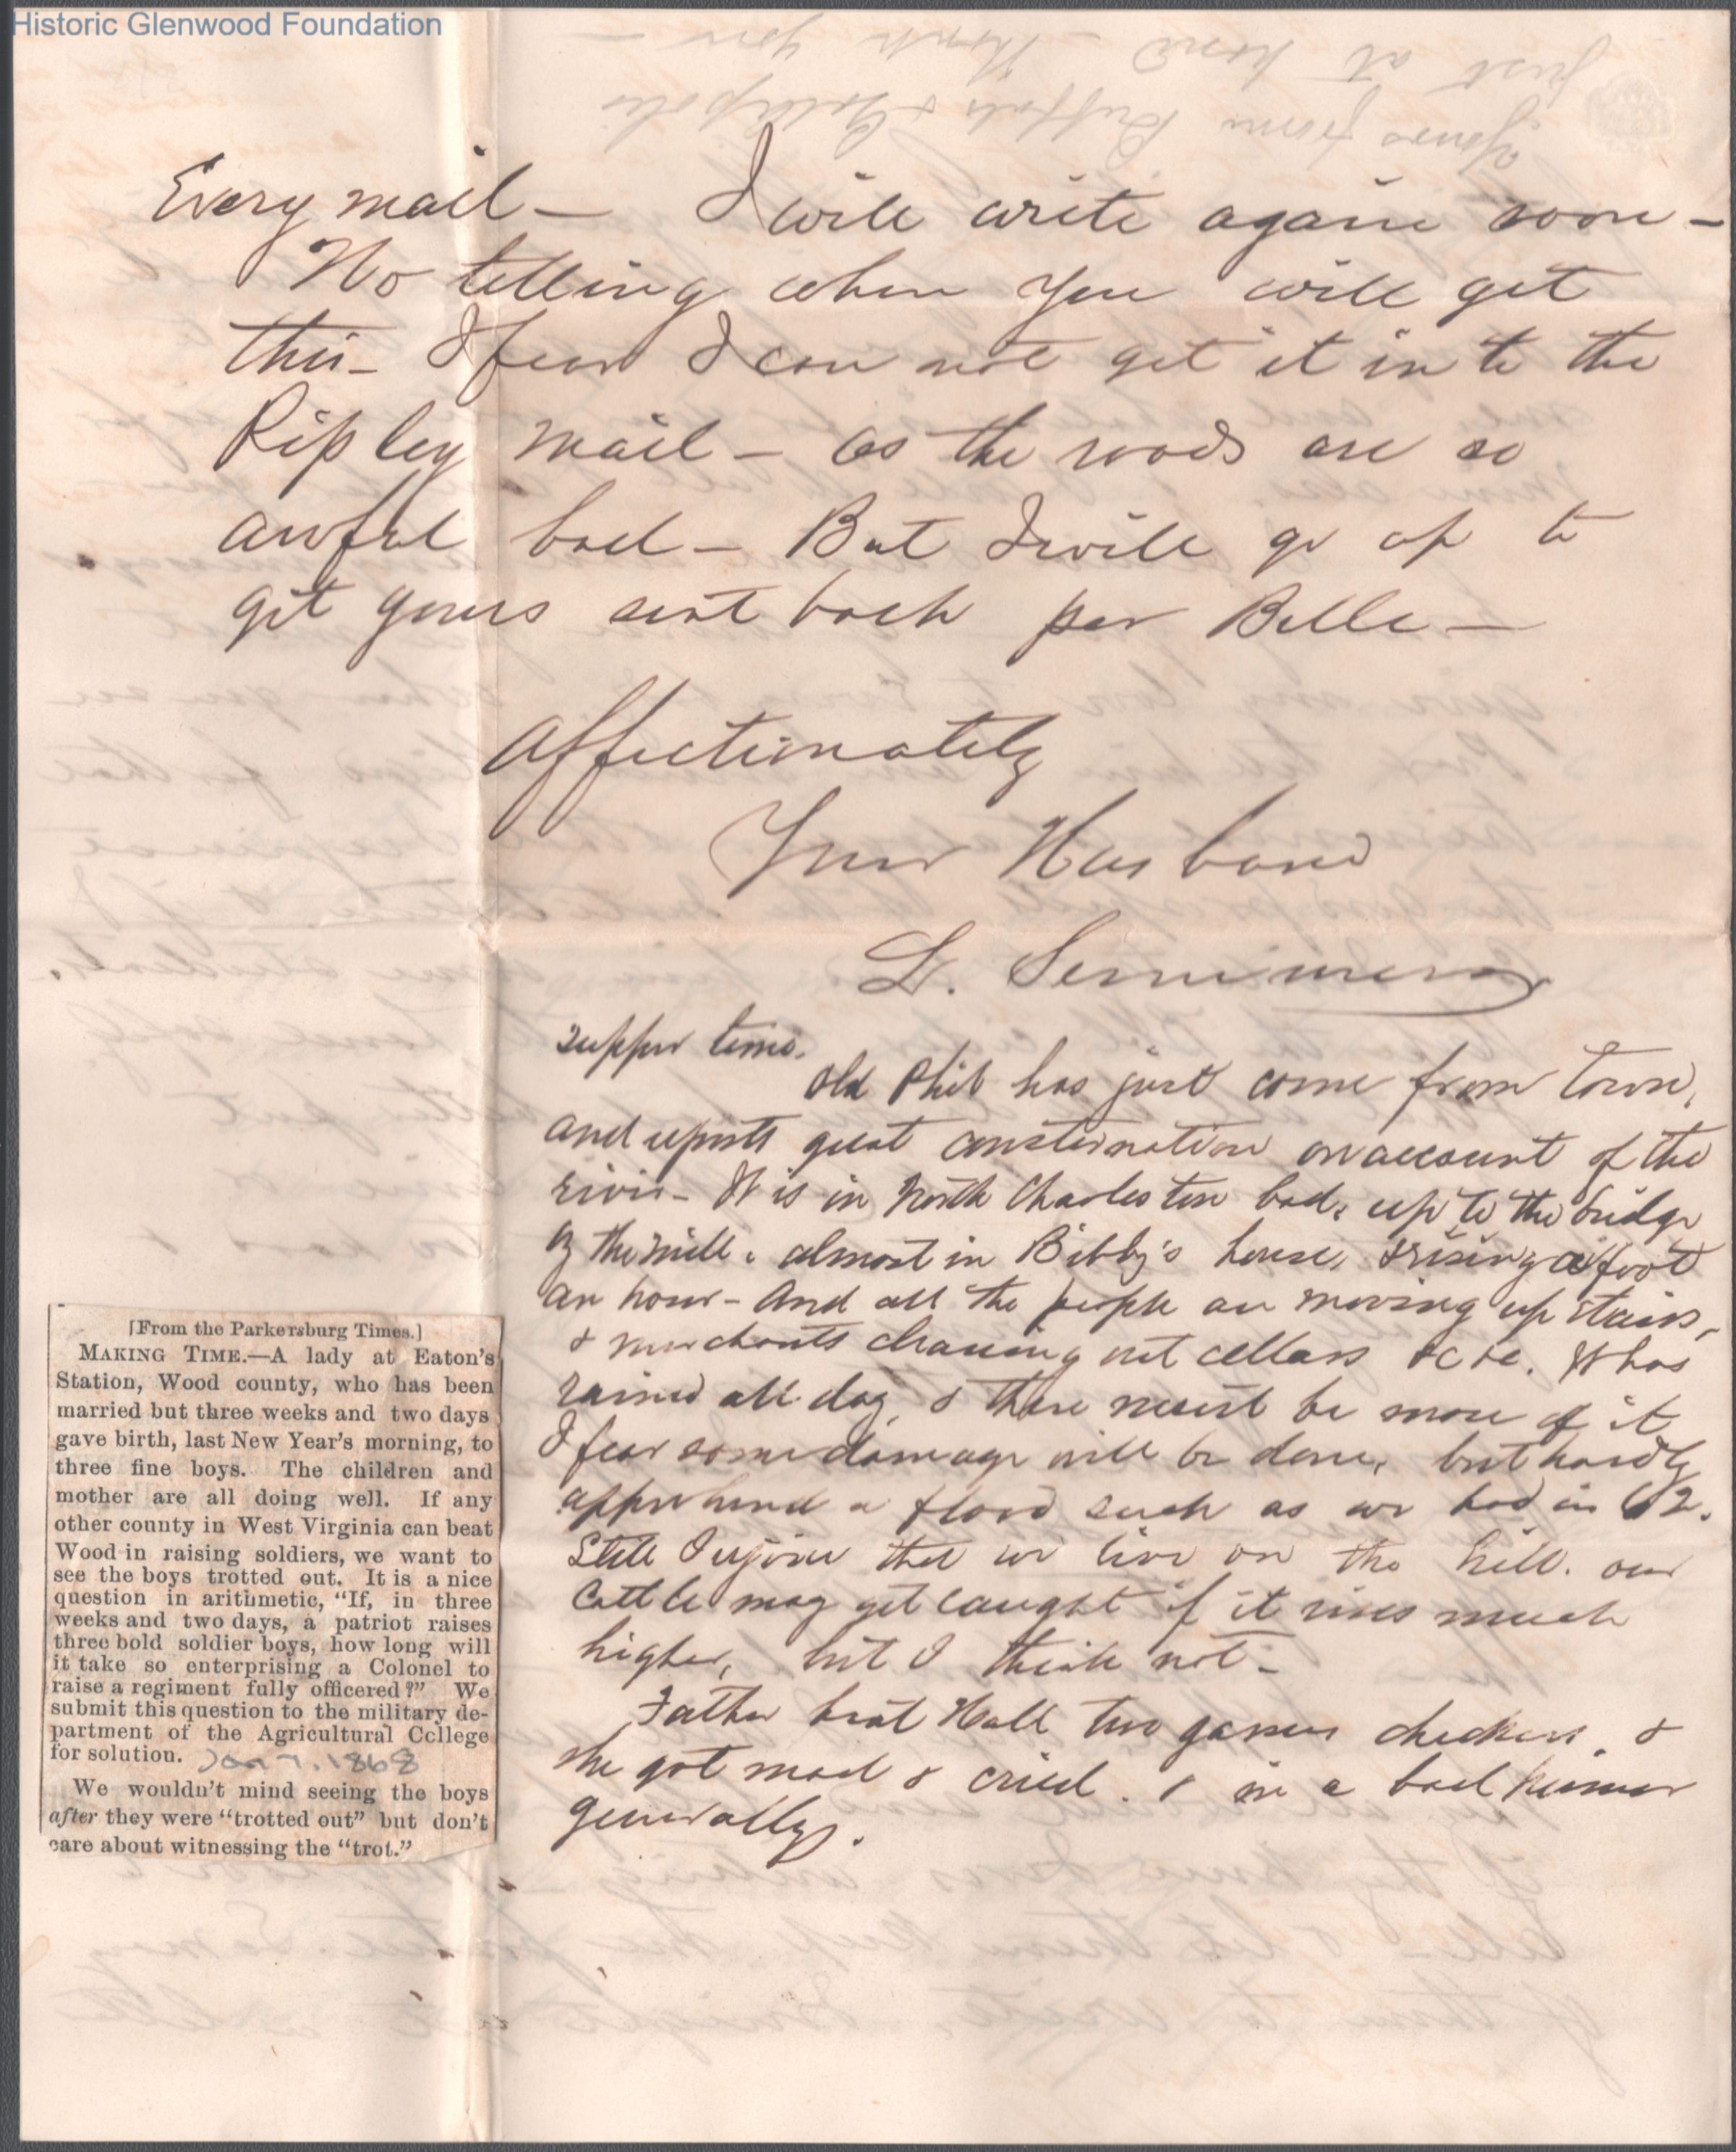 Historic Glenwood Foundation
Every mail – I will write again soon –
No telling when you will get
this – I fear I can not get it in to the
Ripley mail – as the roads are so
awful bad – But I will go up to
git yours sent back per Belle –
Affectionately
Your Husband
L. Summers
supper time.
Old Phil has just come from town,
and reports great consternation on account of the
river – It is in North Charleston bad, up to the bridge
by the mill, almost in Bibby's house, & rising a foot
an hour – And all the people are moving up stairs,
& merchants cleaning out cellars &c &c. It has
rained all day, & there must be more of it
I fear some damage will be done, but hardly
apprehend a flood such as we had in 62.
Still I rejoice that we live on the hill. our
Cattle may get caught if it rises much
higher, but I think not –
Father beat Hall two games checkers, &
she got mad & cried. & in a bad humor
generally.
[From the Parkersburg Times.]
MAKING TIME.—A lady at Eaton's
Station, Wood county, who has been
married but three weeks and two days
gave birth, last New Year's morning, to
three fine boys. The children and
mother are all doing well. If any
other county in West Virginia can beat
Wood in raising soldiers, we want to
see the boys trotted out. It is a nice
question in arithmetic, "If, in three
weeks and two days, a patriot raises
three bold soldier boys, how long will
it take so enterprising a Colonel to
raise a regiment fully officered?" We
submit this question to the military de-
partment of the Agricultural College
for solution. Jan 7. 1868
We wouldn't mind seeing the boys
after they were "trotted out" but don't
care about witnessing the "trot."